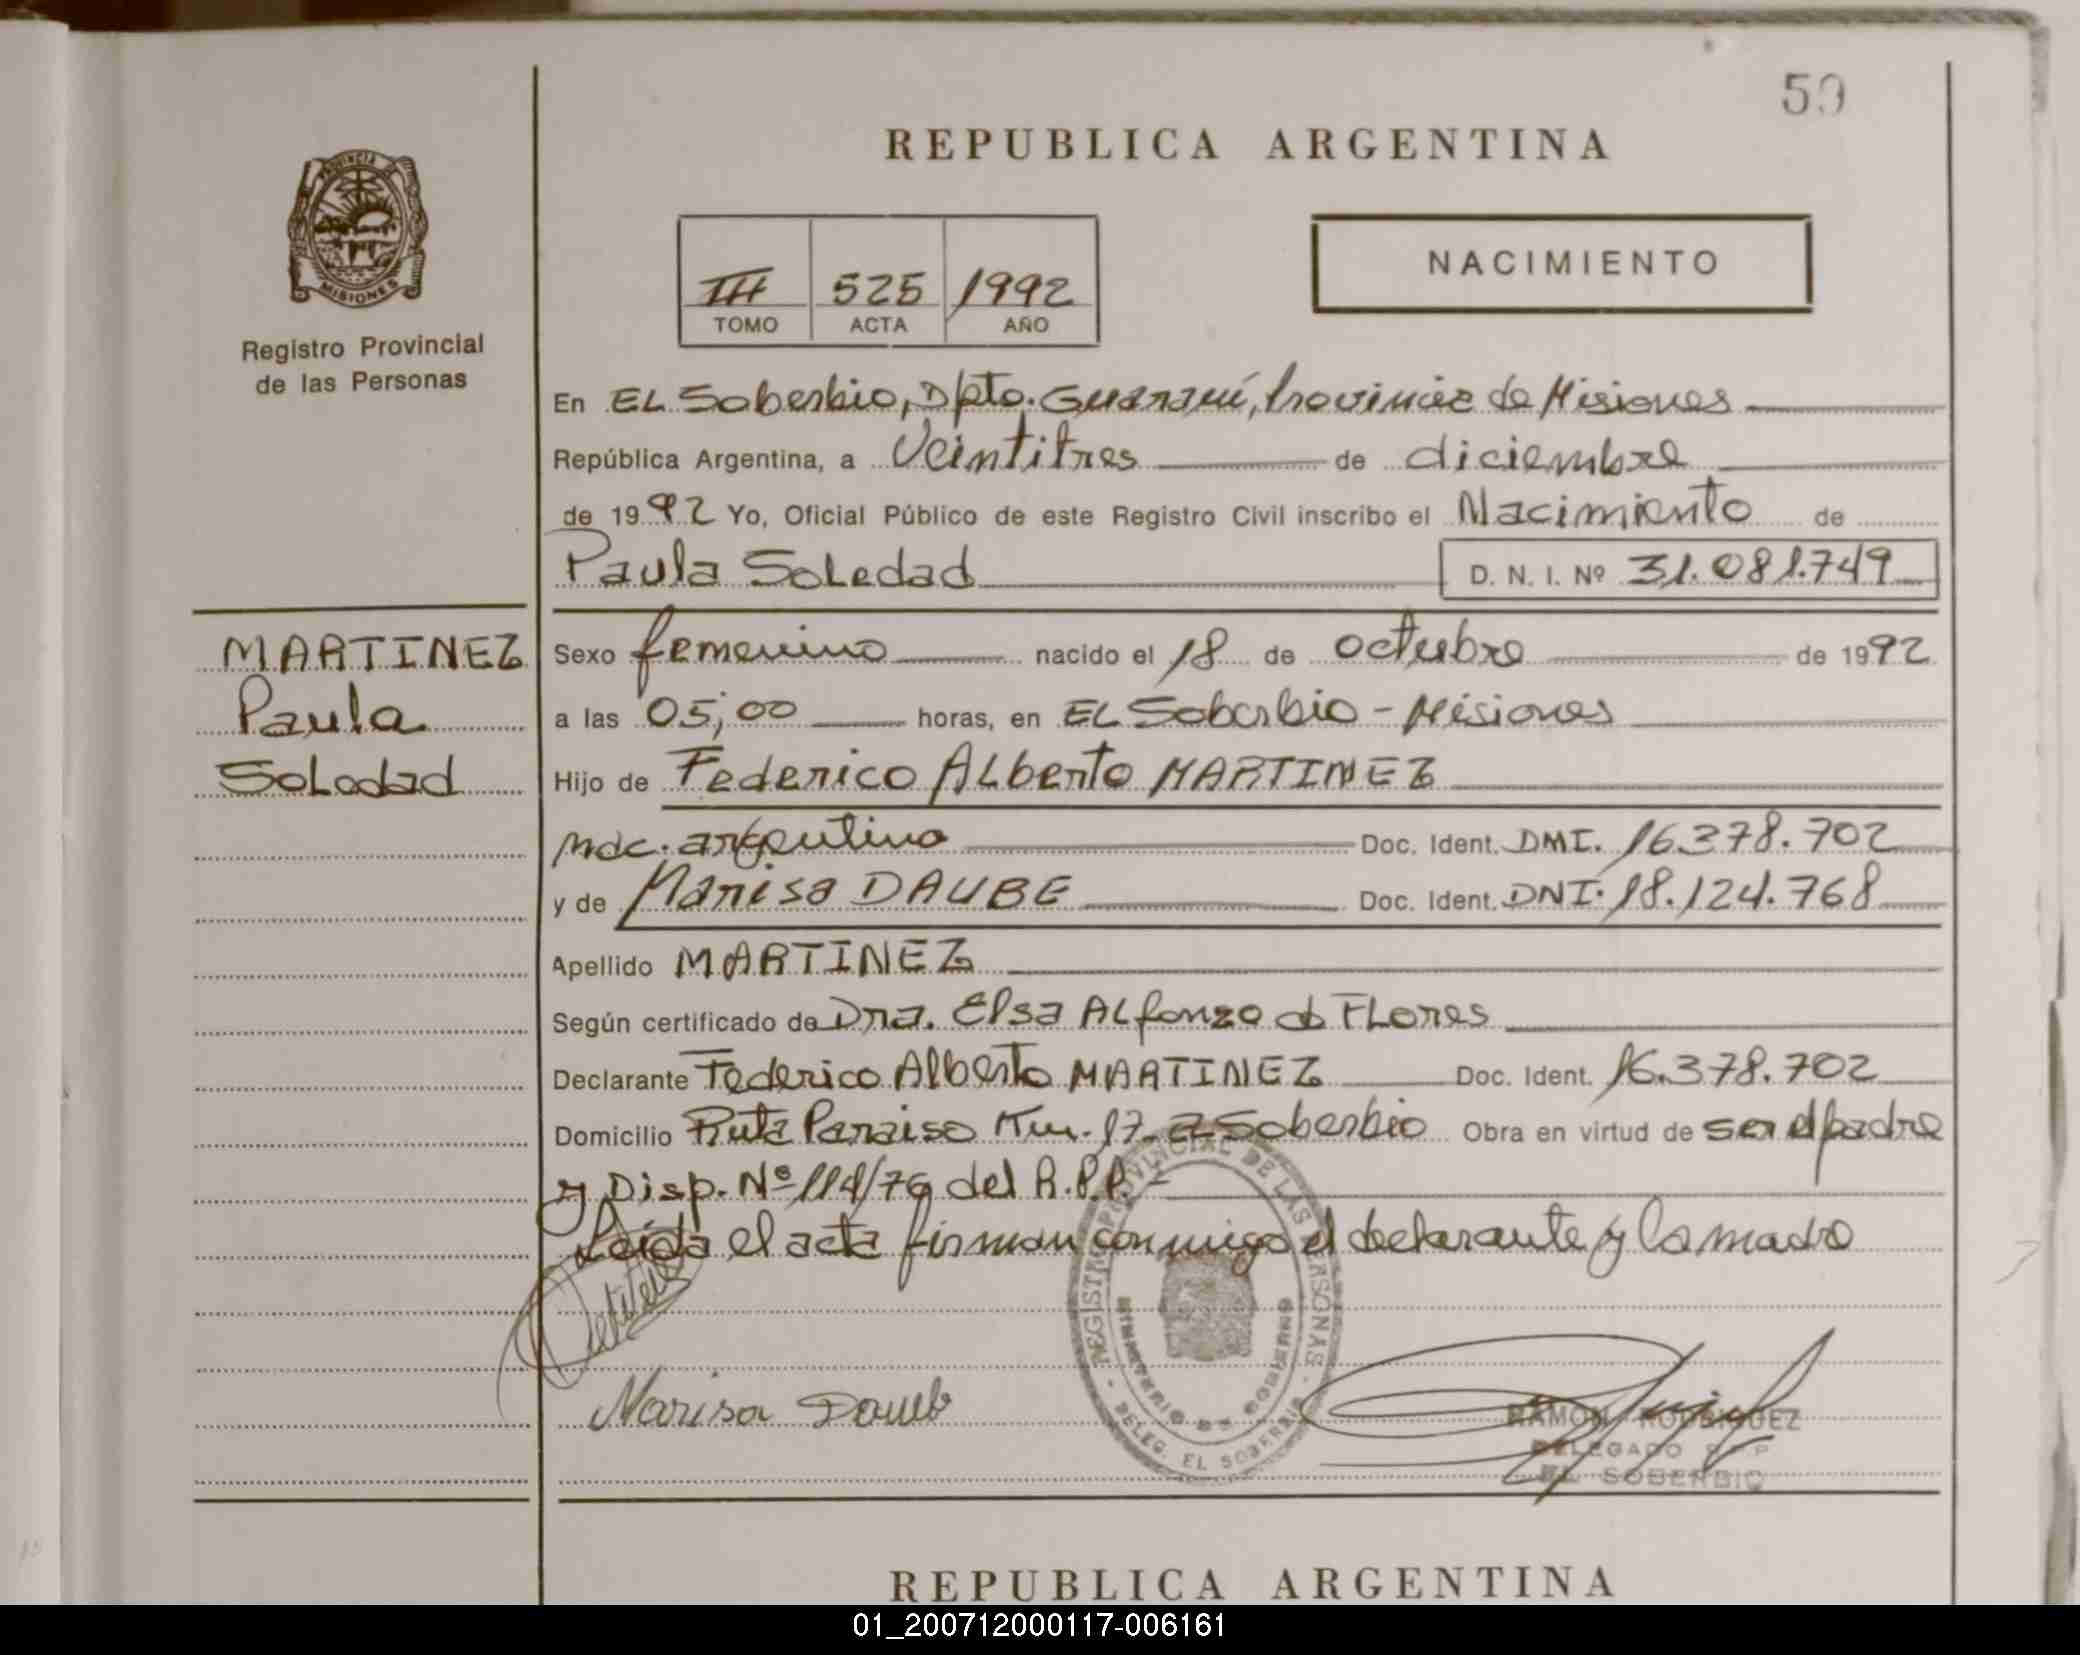 50
REPUBLICA ARGENTINA
PROVINCIA DE
MISIONES
Registro Provincial
de las Personas
III 525 1992
TOMO ACTA AÑO
NACIMIENTO
En EL Soberbio, Dpto. Guaraní, Provincia de Misiones
República Argentina, a Veintitres de diciembre
de 1992 Yo, Oficial Público de este Registro Civil inscribo el Nacimiento de
Paula Soledad D. N. I. Nº 31.081.749
MARTINEZ
Paula
Soledad
Sexo femenino nacido el 18 de octubre de 1992
a las 05,00 horas, en EL Soberbio - Misiones
Hijo de Federico Alberto MARTINEZ
nac. argentino Doc. Ident. DNI. 16.378.702
y de Marisa DAUBE Doc. Ident. DNI. 18.124.768
Apellido MARTINEZ
Según certificado de Dra. Elsa Alfonzo de Flores
Declarante Federico Alberto MARTINEZ Doc. Ident. 16.378.702
Domicilio Ruta Paraiso Km. 17 - El Soberbio Obra en virtud de ser el padre
y Disp. Nº 114/76 del R.P.P. -
Leida el acta firman conmigo el declarante y la madre
REGISTRO PROVINCIAL DE LAS PERSONAS
MINISTERIO DE GOBIERNO
- DELEG. EL SOBERBIO -
Marisa Daub
RAMON RODRIGUEZ
DELEGADO R P P
EL SOBERBIO
REPUBLICA ARGENTINA
01_200712000117-006161